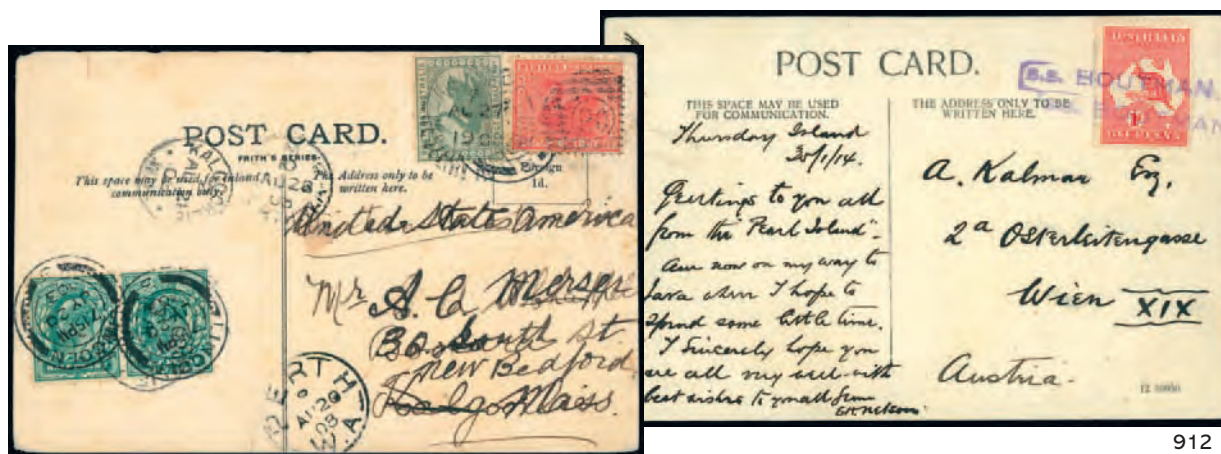 POST CARD.
FRITH'S SERIES.
This space may be used for Inland
communication only.
The Address only to be
written here.
Foreign
1d.
United States America
Mr A. C.
South St
New Bedford
Mass.
PERTH
AU 20
08
W.A
POST CARD.
THIS SPACE MAY BE USED
FOR COMMUNICATION.
THE ADDRESS ONLY TO BE
WRITTEN HERE.
S.S. HOUTMAN
Thursday Island
Greetings to you all
from the "Pearl Island".
am now on my way to
Java where I hope to
spend some little time.
I Sincerely hope you
are all very well with
best wishes to you all from
A. Kalmar Esq.
2a Osterleitengasse
Wien XIX
Austria.
912